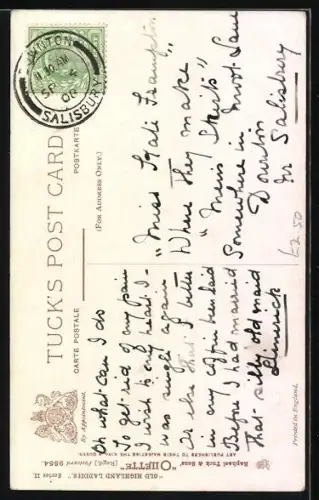 TUCK'S POST CARD
CARTE POSTALE
POSTKARTE
(FOR ADDRESS ONLY.)
By Appointment.
WINTON
11.40 AM
SP 4
06
SALISBURY
Oh what can I do
To get rid of my pain
I wish to my heart I
was single again
Or else that I better
in my coffin been laid
Before I had married
that silly old maid
Limerick
"Miss Kate Frampton
Where they make
"Mens Skirts"
Somewhere in Moot Lane
Downton
Nr Salisbury
£2.50
Raphael Tuck & Sons'
"OILETTE"
(Regd.) Postcard 9884.
"OLD HIGHLAND LADDIES." Series II.
ART PUBLISHERS TO THEIR MAJESTIES THE KING & QUEEN.
Printed in England.